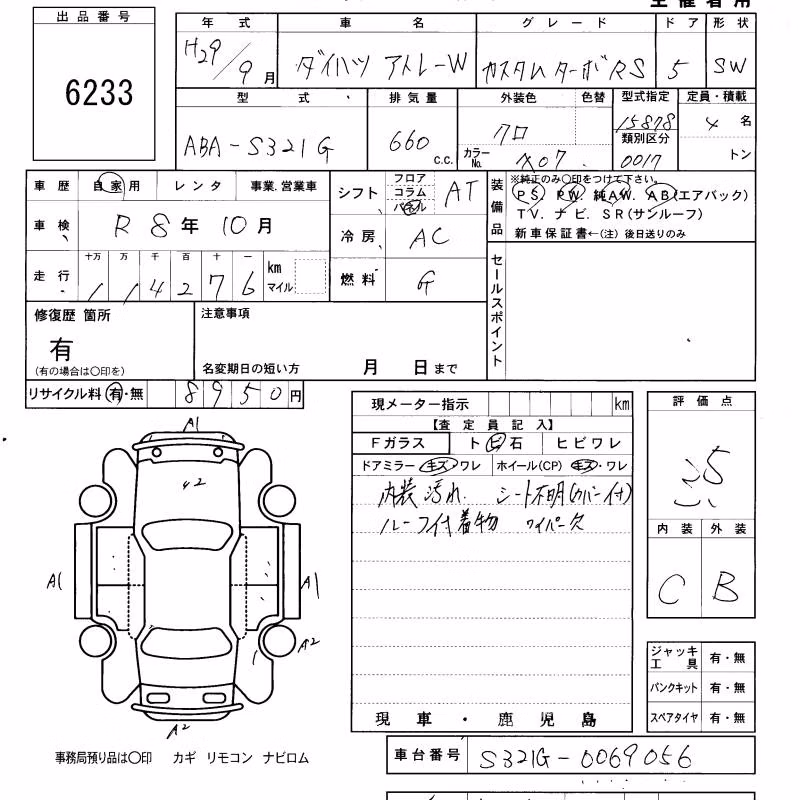 主催者用
出品番号
6233
年式 車名 グレード ドア 形状
H29/9月 ダイハツ アトレーW カスタムターボRS 5 SW
型式 排気量 外装色 色替 型式指定 定員・積載
15878 4名
ABA-S321G 660 c.c. クロ 類別区分
カラーNo. X07 0017 トン
車歴 自家用 レンタ 事業.営業車
シフト フロア コラム パネル AT
装備品
※純正のみ〇印をつけて下さい。
PS. PW. 純AW. AB(エアバック)
TV. ナビ. SR(サンルーフ)
新車保証書←(注)後日送りのみ
車検 R8年10月
冷房 AC
走行 十万 万 千 百 十 一
114276 km マイル
燃料 G
セールスポイント
修復歴 箇所
有
(有の場合は〇印を)
注意事項
名変期日の短い方 月 日まで
リサイクル料 有・無 8950円
現メーター指示 km
【査定員記入】
Fガラス トビ石 ヒビワレ
ドアミラー キズ・ワレ ホイール(CP) キズ・ワレ
内装汚れ シート不明(カバー付)
ルーフ付着物 ワイパー欠
評価点
3.5
内装 外装
C B
A1
A2
A1 A1
A2
A2
ジャッキ工具 有・無
パンクキット 有・無
スペアタイヤ 有・無
現車・鹿児島
事務局預り品は〇印 カギ リモコン ナビロム
車台番号 S321G-0069056